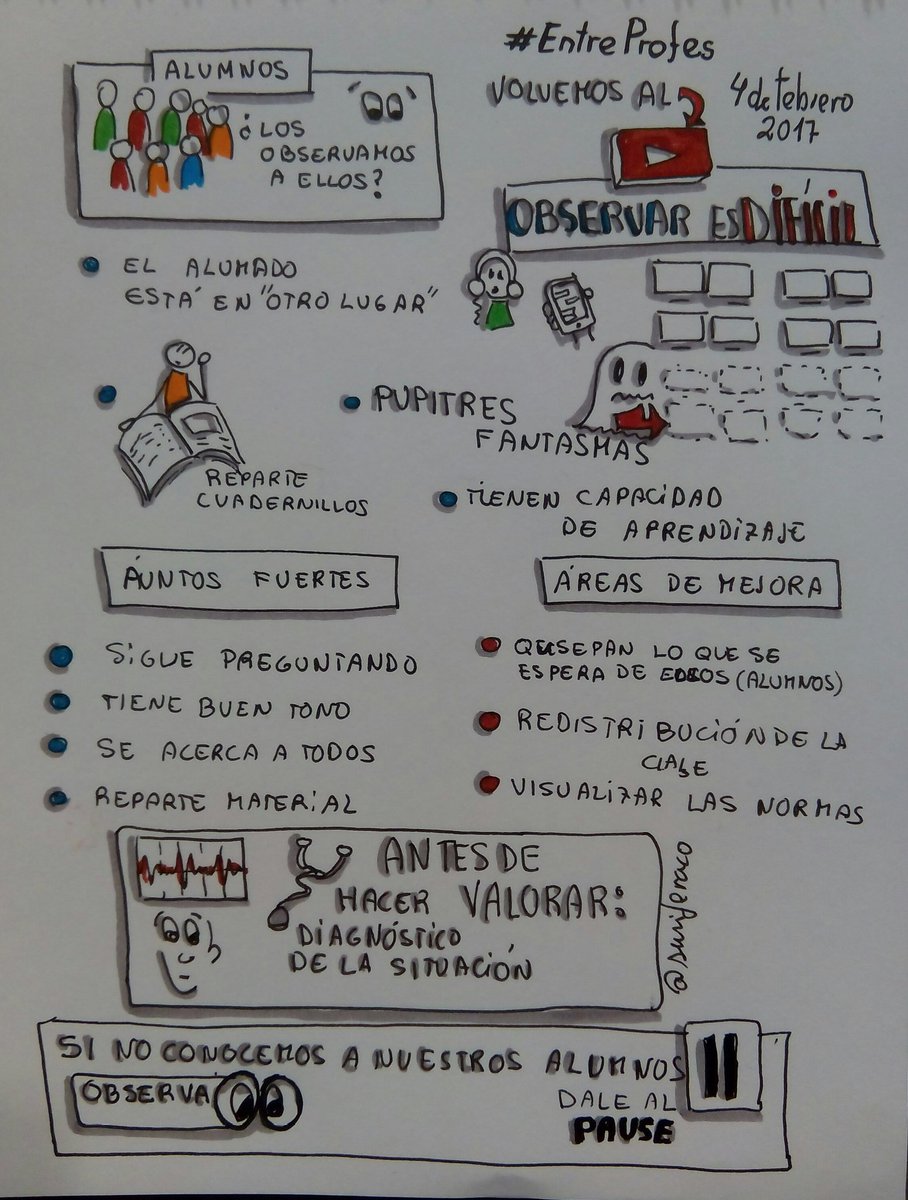 #EntreProfes
VOLVEMOS AL
4 de febrero
2017
OBSERVAR ES DIFÍCIL
ALUMNOS
¿LOS
OBSERVAMOS
A ELLOS?
EL ALUMADO
ESTÁ EN "OTRO LUGAR"
REPARTE
CUADERNILLOS
PUPITRES
FANTASMAS
TIENEN CAPACIDAD
DE APRENDIZAJE
PUNTOS FUERTES
SIGUE PREGUNTANDO
TIENE BUEN TONO
SE ACERCA A TODOS
REPARTE MATERIAL
ÁREAS DE MEJORA
QUE SEPAN LO QUE SE
ESPERA DE ELLOS (ALUMNOS)
REDISTRIBUCIÓN DE LA
CLASE
VISUALIZAR LAS NORMAS
ANTES DE
HACER VALORAR:
DIAGNÓSTICO
DE LA SITUACIÓN
SI NO CONOCEMOS A NUESTROS ALUMNOS
OBSERVA
DALE AL
PAUSE